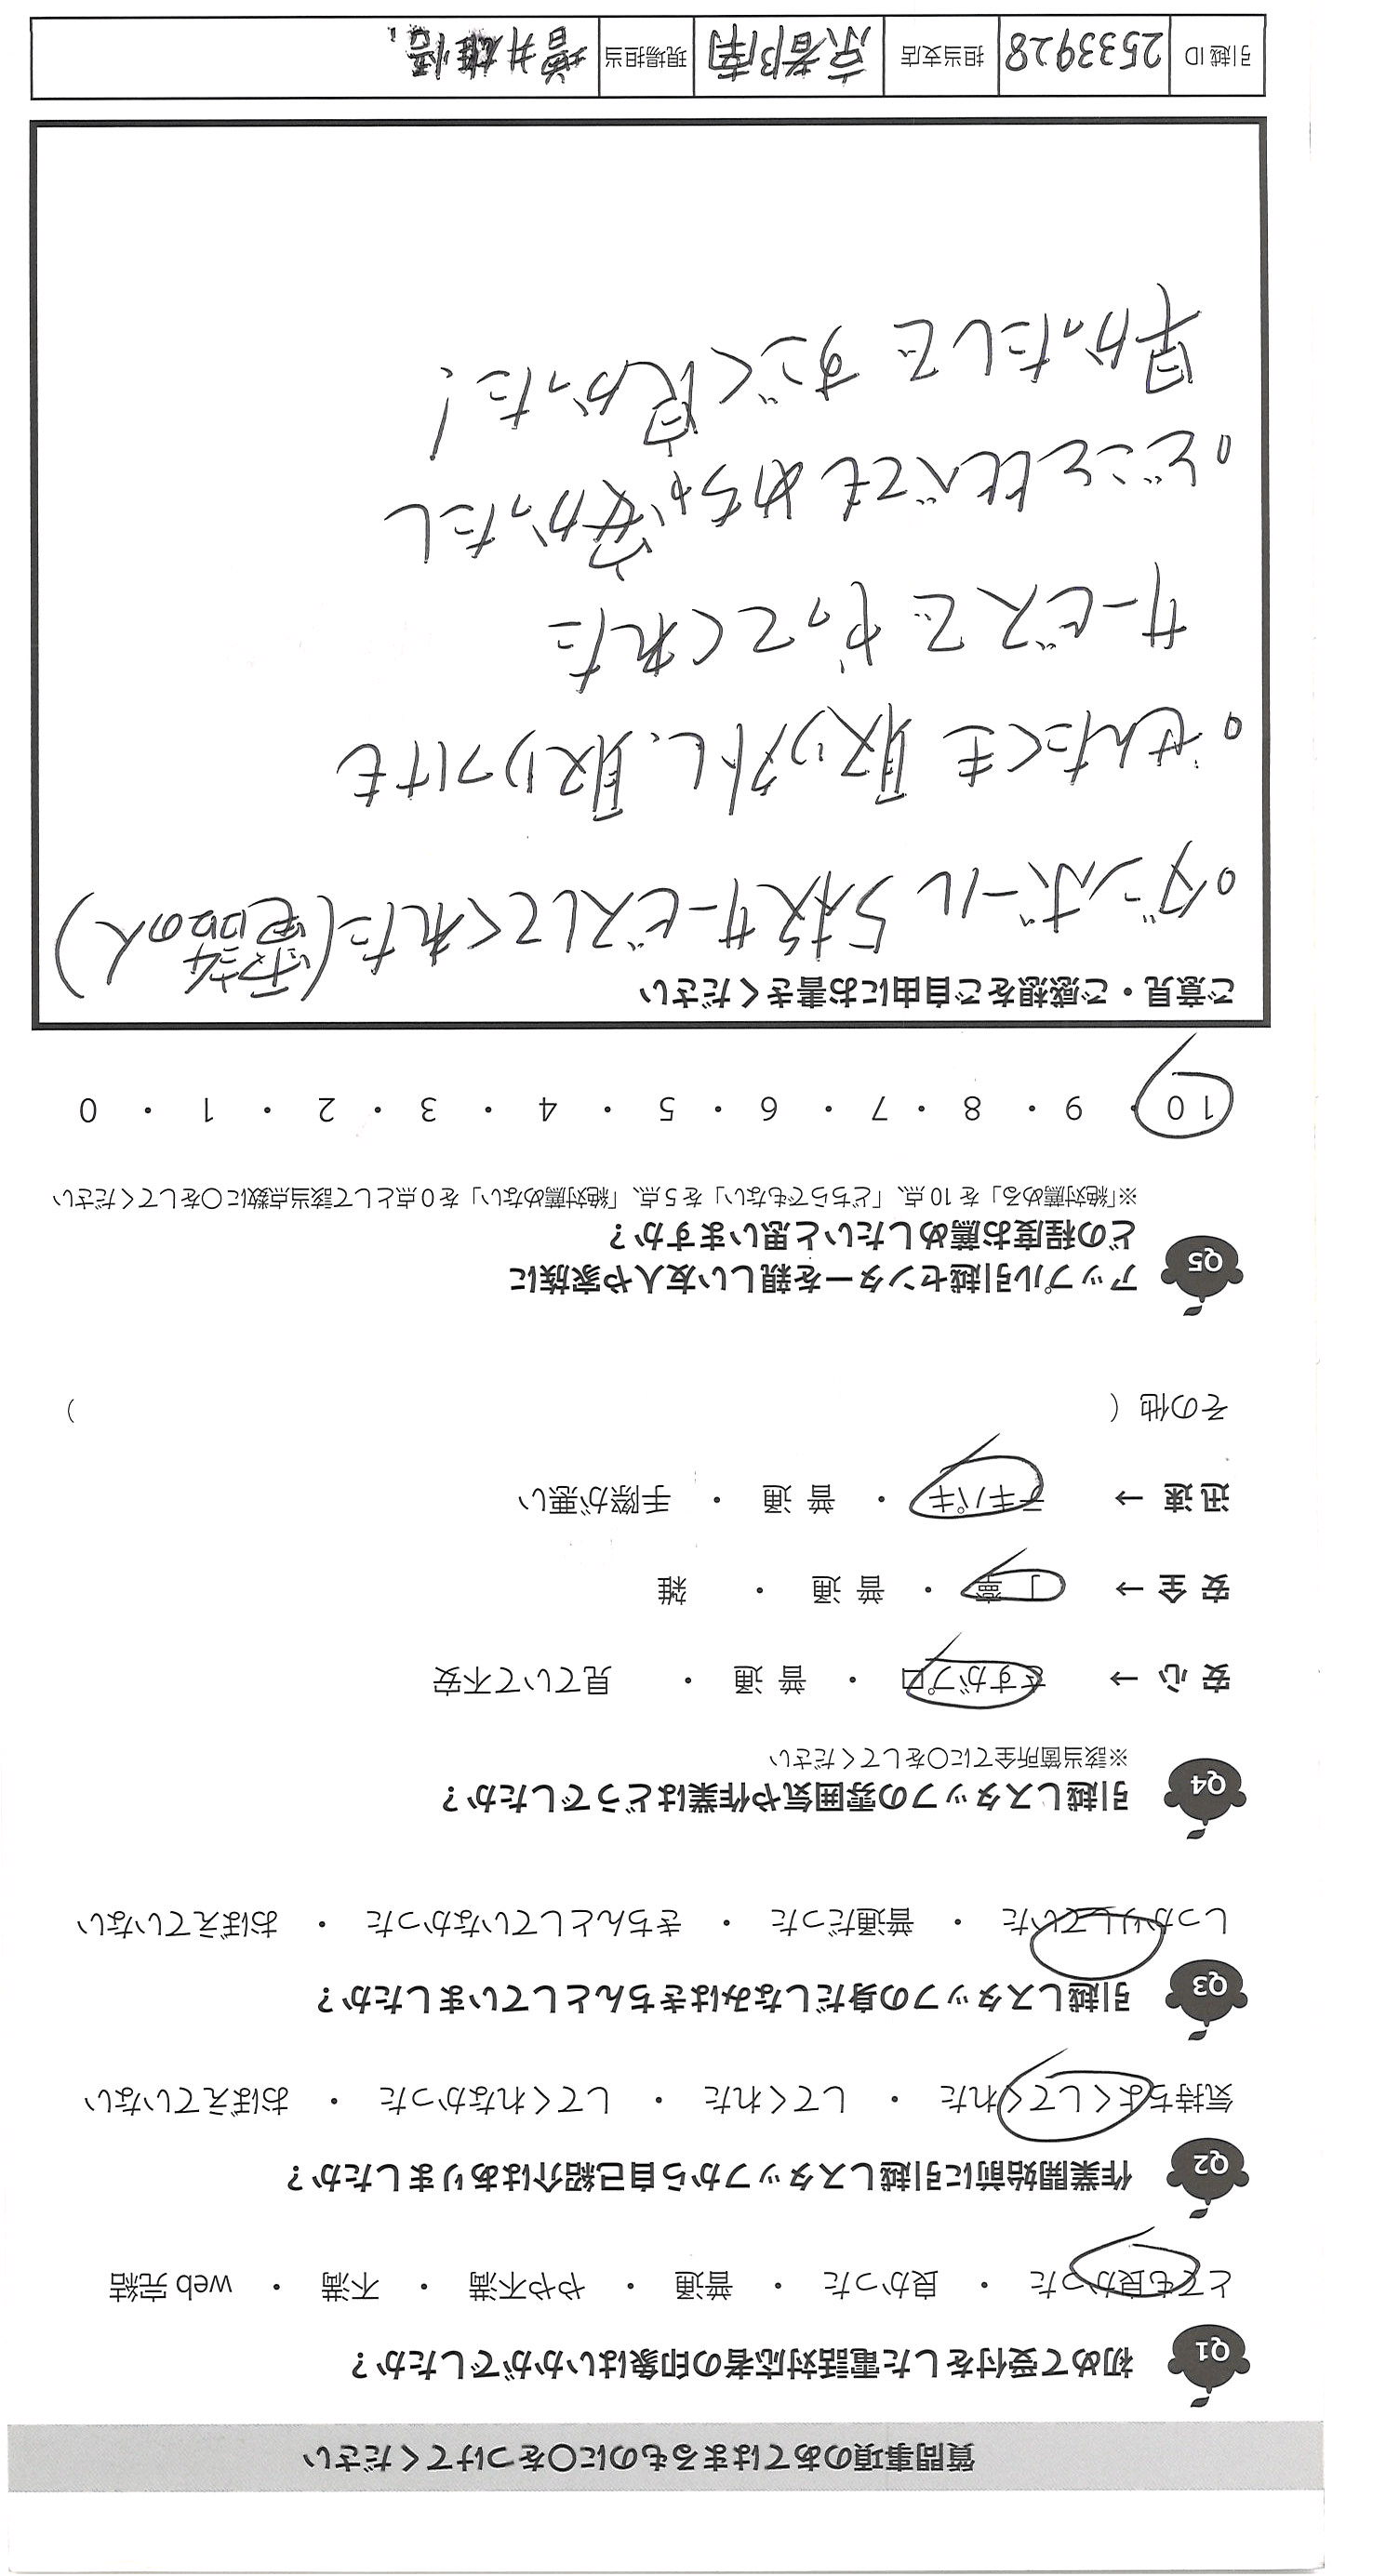 質問事項のあてはまるものに〇をつけてください
Q1 初めて受付をした電話対応者の印象はいかがでしたか？
とても良かった ・ 良かった ・ 普通 ・ やや不満 ・ 不満 ・ web 完結
Q2 作業開始前に引越しスタッフから自己紹介はありましたか？
気持ちよくしてくれた ・ してくれた ・ してくれなかった ・ おぼえていない
Q3 引越しスタッフの身だしなみはきちんとしていましたか？
しっかりしていた ・ 普通だった ・ きちんとしていなかった ・ おぼえていない
Q4 引越しスタッフの雰囲気や作業はどうでしたか？
※該当箇所全てに〇をしてください
安 心 → さすがプロ ・ 普 通 ・ 見ていて不安
安 全 → 丁 寧 ・ 普 通 ・ 雑
迅 速 → テキパキ ・ 普 通 ・ 手際が悪い
その他（ ）
Q5 アップル引越センターを親しい友人や家族に
どの程度お薦めしたいと思いますか？
※「絶対薦める」を 10 点、「どちらでもない」を 5 点、「絶対薦めない」を 0 点として該当点数に〇をしてください
10 ・ 9 ・ 8 ・ 7 ・ 6 ・ 5 ・ 4 ・ 3 ・ 2 ・ 1 ・ 0
ご意見・ご感想をご自由にお書きください
。ダンボール 5枚サービスしてくれた(電話の人)
。せんたくき 取り外し、取りつけも
サービスで やってくれた
。どこと比べても めちゃ安かったし
早かったしで すごく良かった!
引越 ID 2533928 担当支店 京都南 現場担当 増井雄